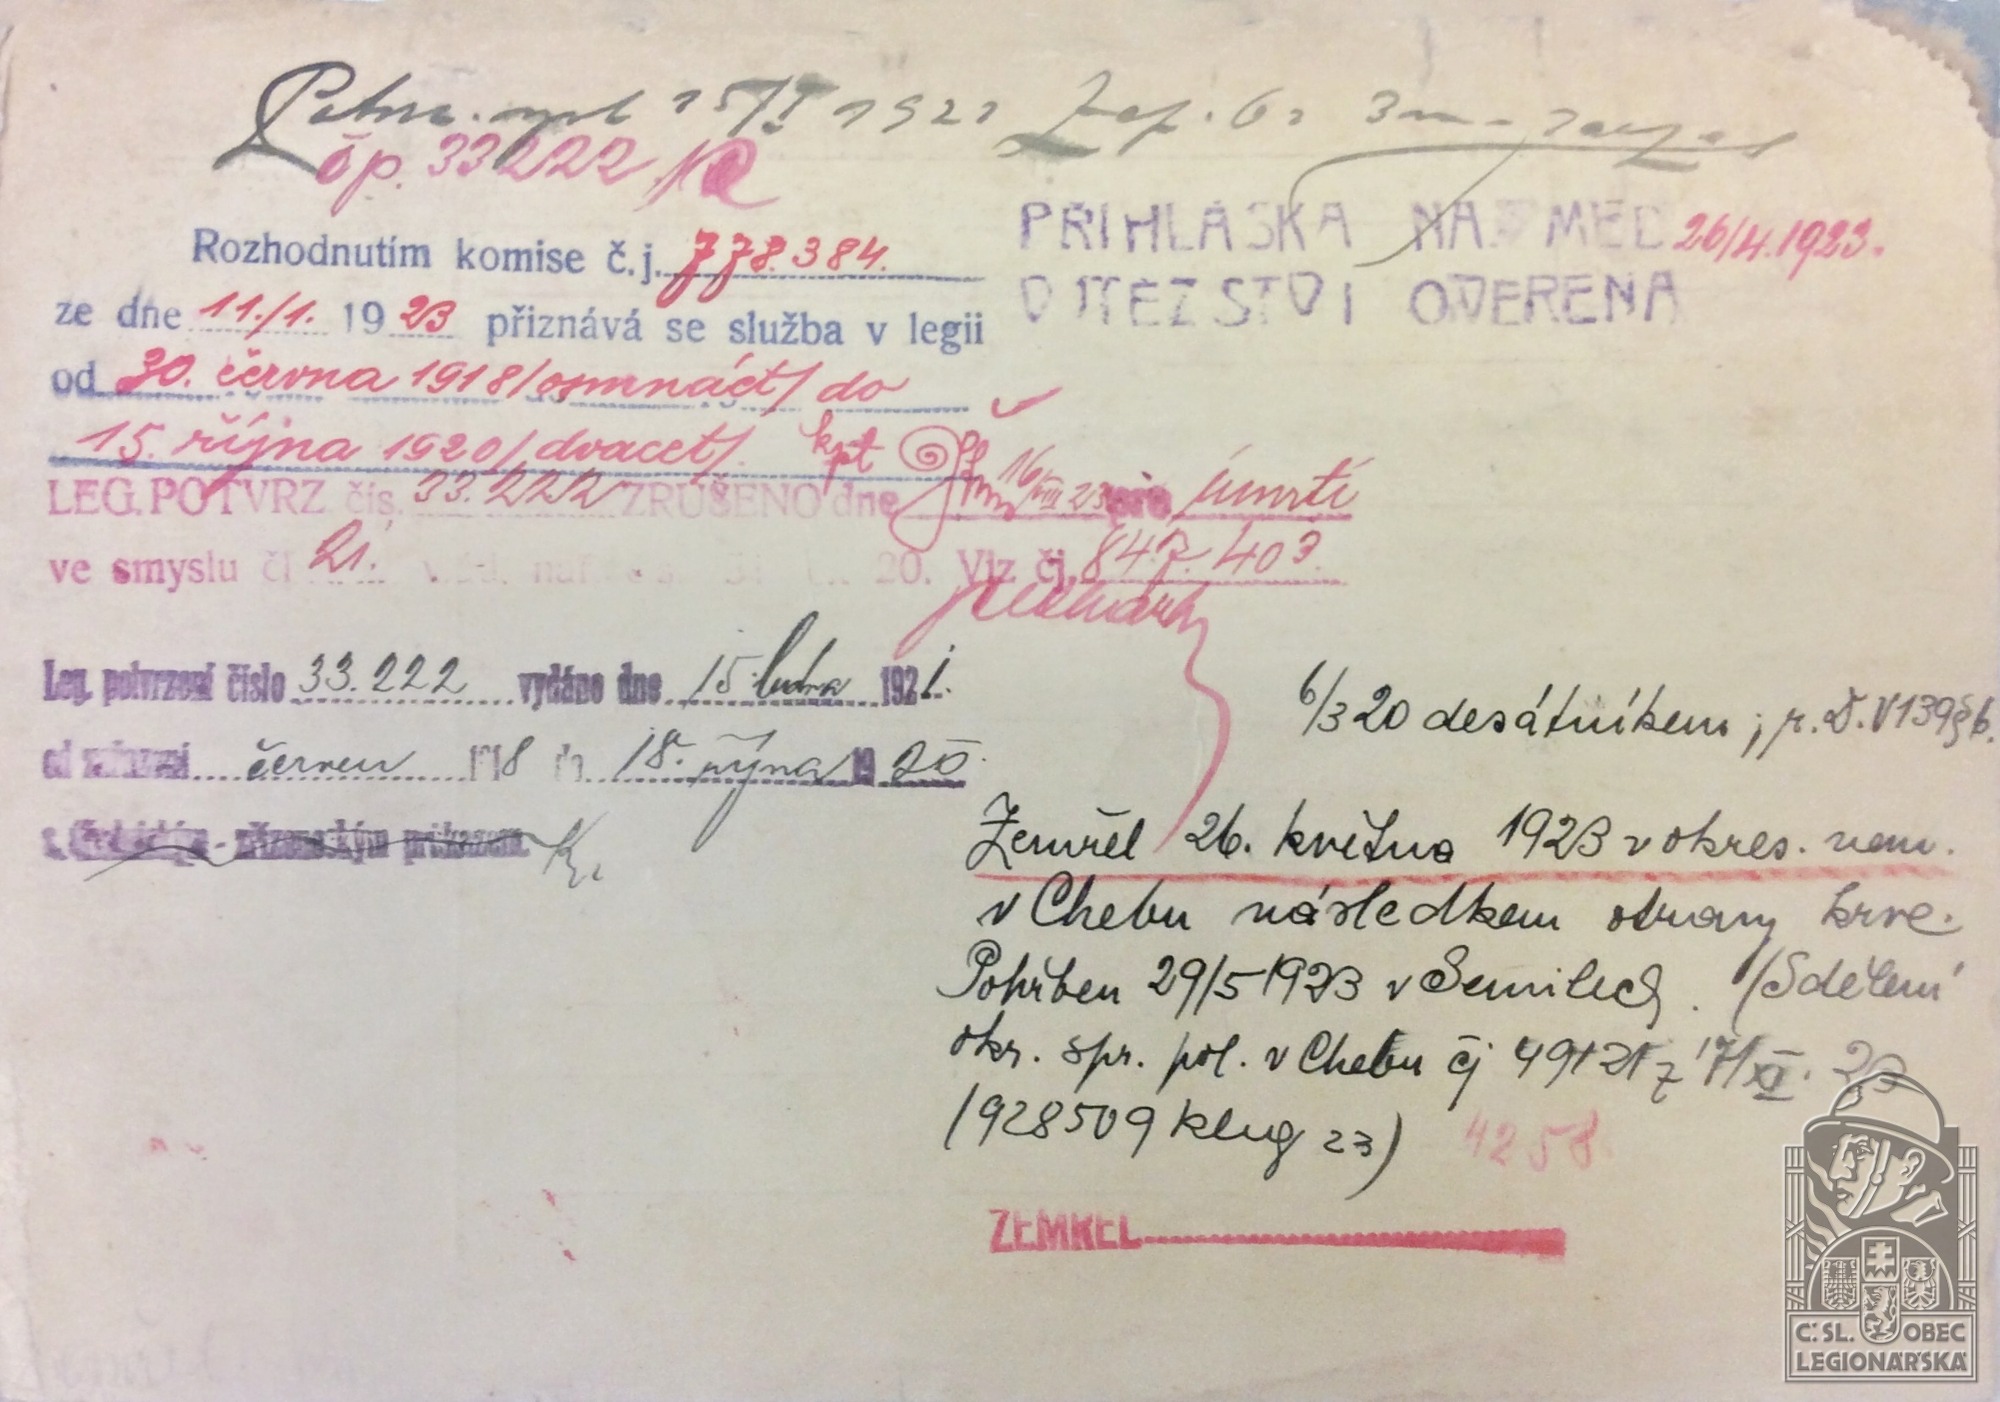 15/I 1921
čp. 33222
Rozhodnutím komise č.j. 778.384.
ze dne 11./1. 1923 přiznává se služba v legii
od 30. června 1918/osmnáct/ do
15. října 1920/dvacet/. kpt
PŘIHLÁŠKA NA MED 26/4.1923.
VÍTĚZSTVÍ OVĚŘENA
LEG. POTVRZ čís. 33.222 ZRUŠENO dne 16/VIII 23 pro úmrtí
ve smyslu čl 21. 20. Viz čj. 847.403.
Leg. potvrzení číslo 33.222 vydáno dne 15. ledna 1921.
od červen 1918 18. října 1920.
6/3 20 desátníkem; r. Č. V 139 § 6.
Zemřel 26. května 1923 v okres. nem.
v Chebu následkem otravy krve.
Pohřben 29/5 1923 v Semilech. (Sdělení
okr. spr. pol. v Chebu čj 49121 z 17/XI. 23
(928509 kleg 23)
4258.
ZEMŘEL
Č. SL. OBEC
LEGIONÁŘSKÁ